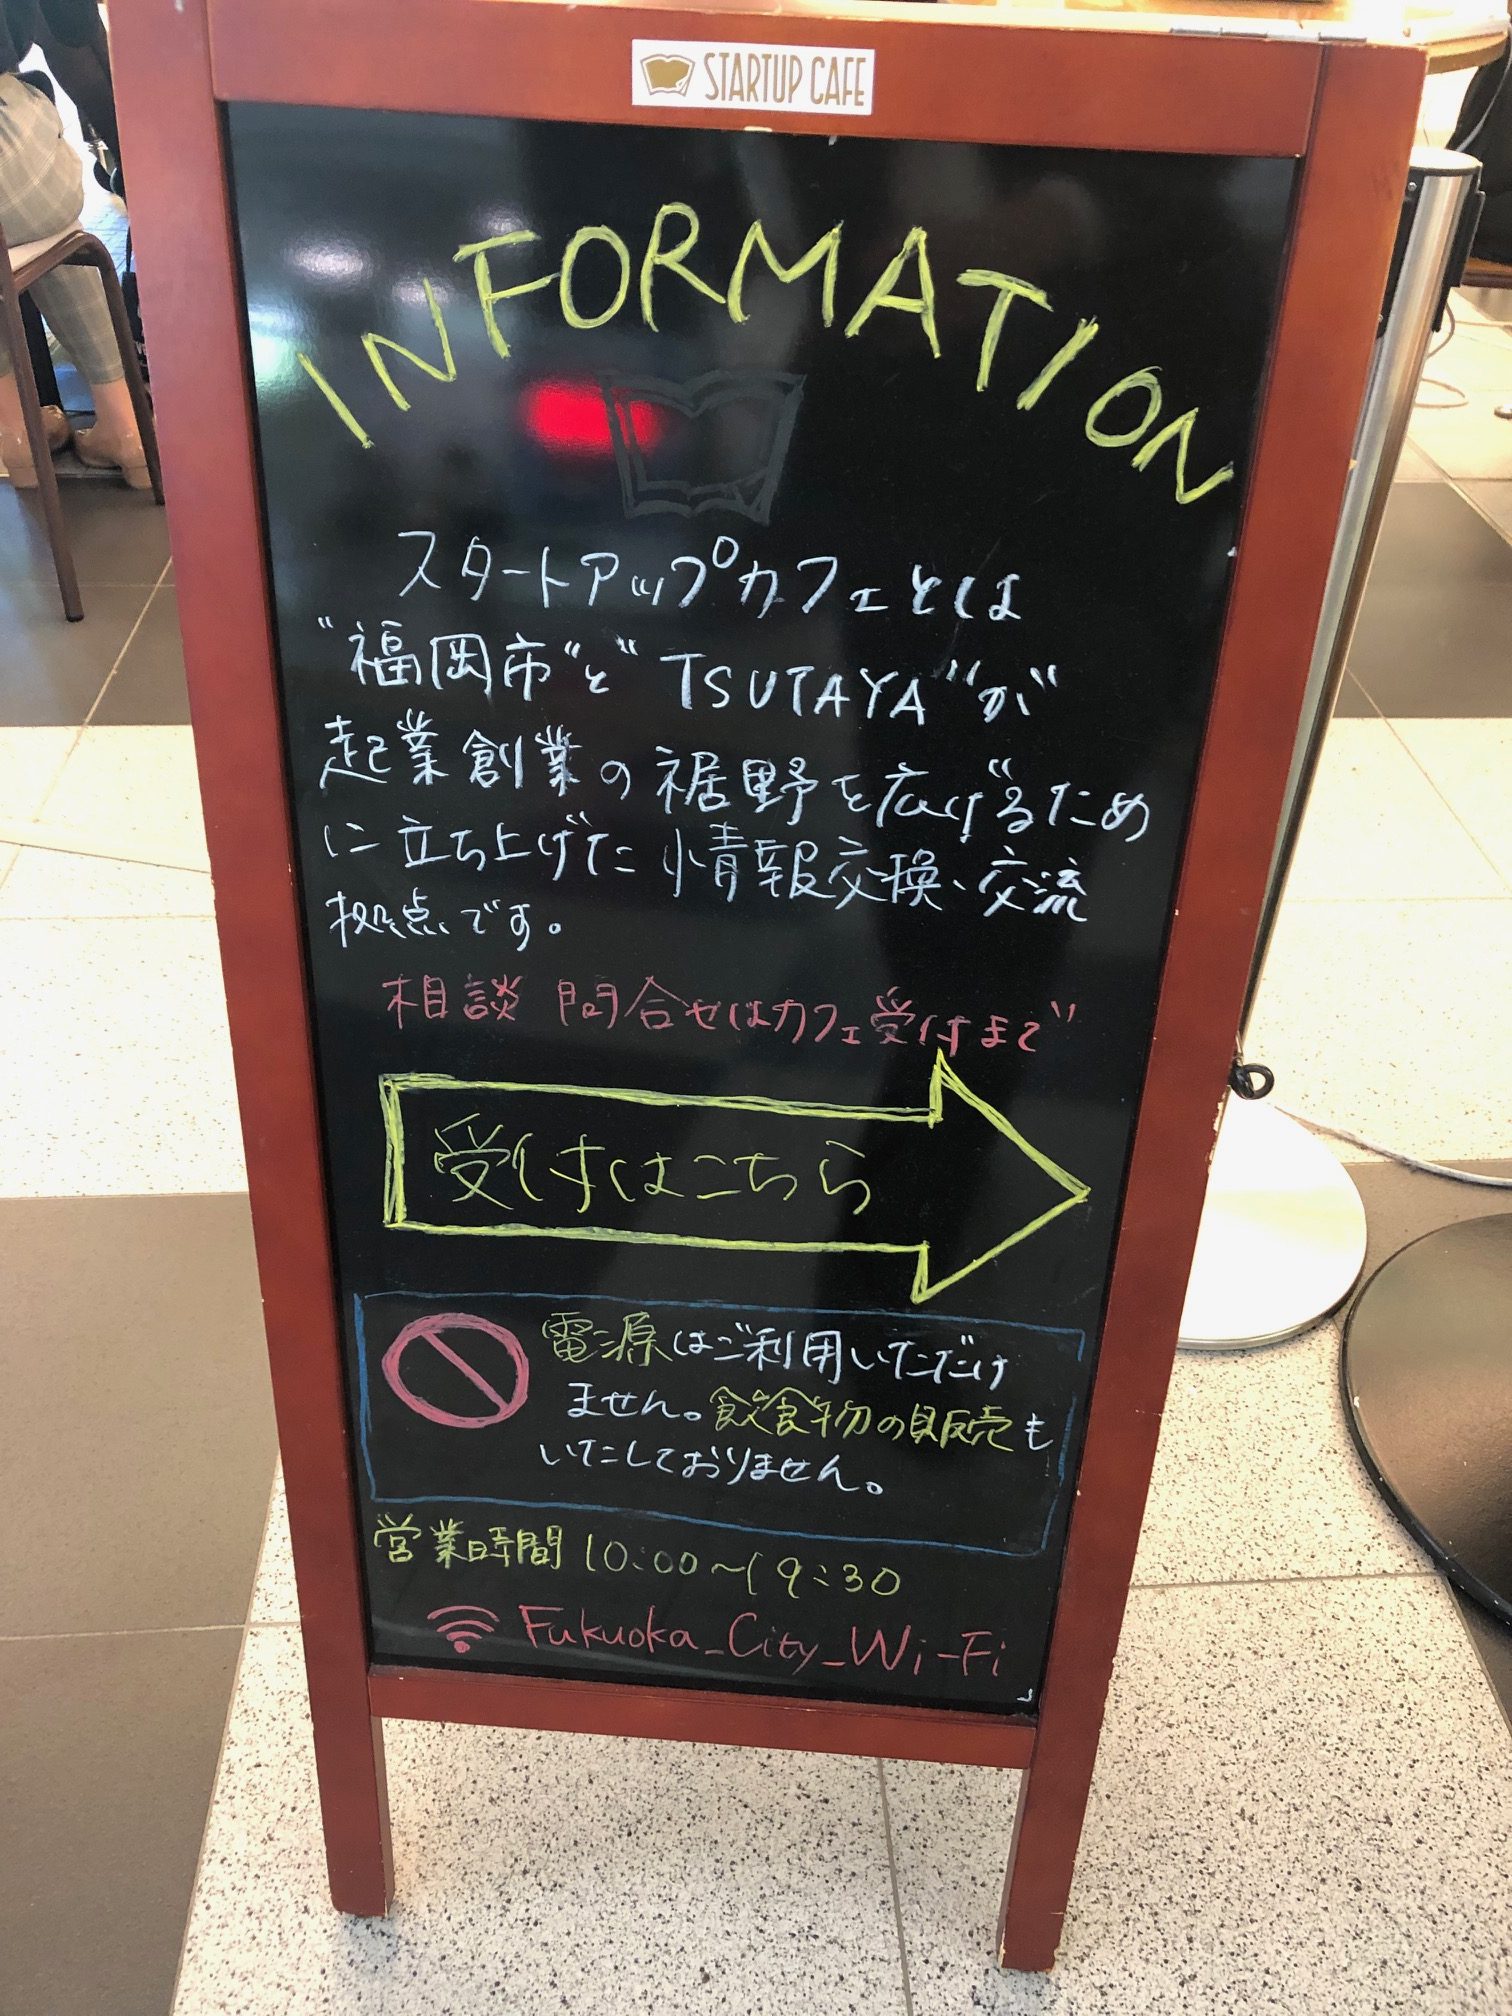 STARTUP CAFE
INFORMATION
スタートアップカフェとは
"福岡市"と"TSUTAYA"が
起業創業の裾野を広げるため
に立ち上げた情報交換、交流
拠点です。
相談 問合せはカフェ受付まで
受付はこちら
電源はご利用いただけ
ません。飲食物の販売も
いたしておりません。
営業時間 10:00〜19:30
Fukuoka_City_Wi-Fi